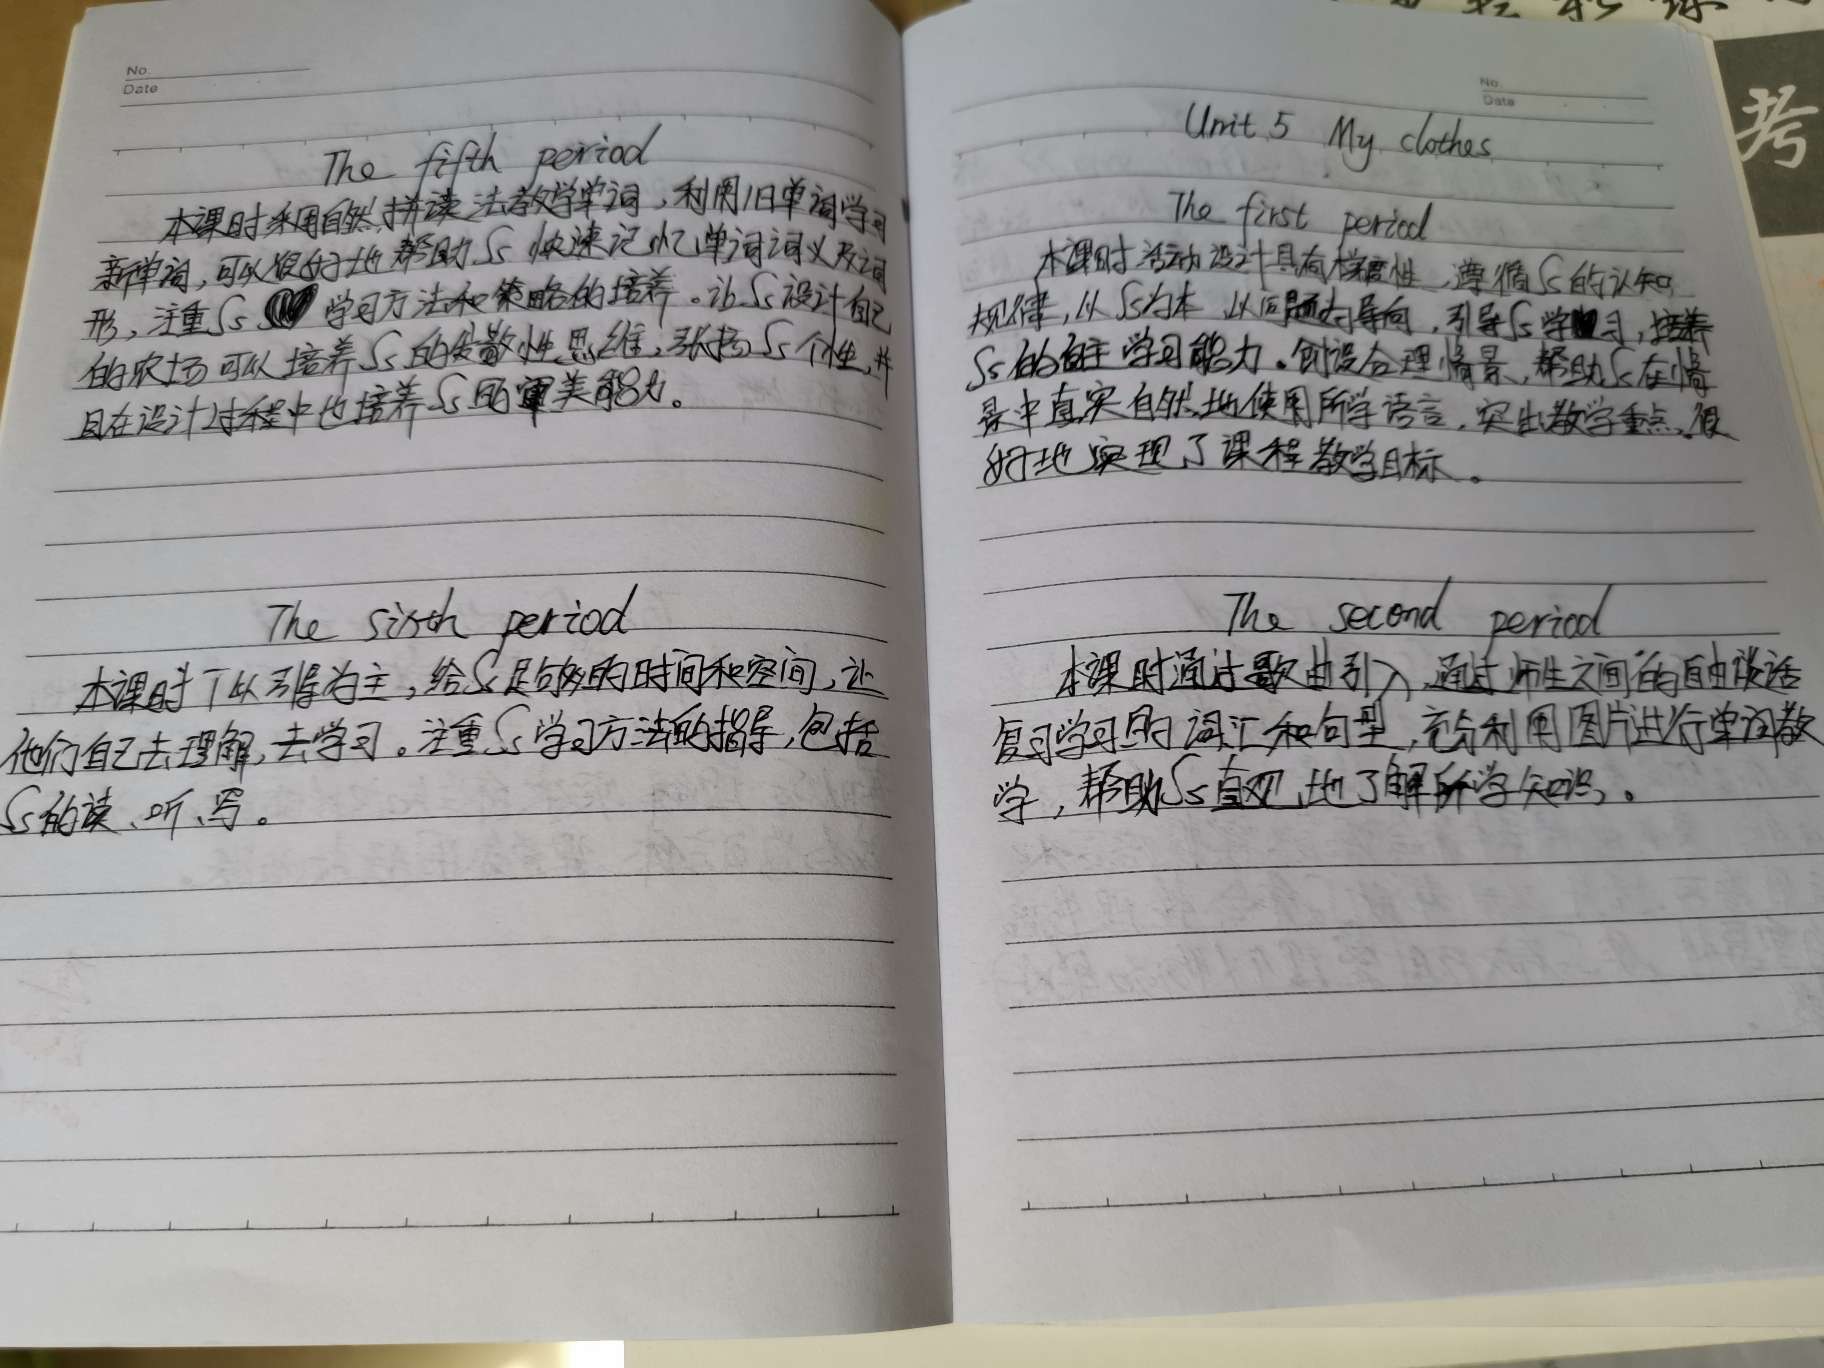 No.
Date
The fifth period
本课时采用自然拼读法教学单词，利用旧单词学习
新单词，可以很好地帮助Ss快速记忆单词词义及词
形，注重Ss学习方法和策略的培养。让Ss设计自己
的农场可以培养Ss的发散性思维，张扬Ss个性，并
且在设计过程中也培养Ss的审美能力。
The sixth period
本课时T以引导为主，给Ss足够的时间和空间，让
他们自己去理解，去学习。注重Ss学习方法的指导，包括
Ss的读、听、写。
No.
Date
Unit 5 My clothes
The first period
本课时活动设计具有梯度性，遵循Ss的认知
规律，以Ss为本，以问题为导向，引导Ss学习，培养
Ss的自主学习能力。创设合理情景，帮助Ss在情
景中真实自然地使用所学语言，突出教学重点，很
好地实现了课程教学目标。
The second period
本课时通过歌曲引入，通过师生之间的自由谈话
复习学习的词汇和句型，充分利用图片进行单词教
学，帮助Ss直观地了解所学知识。
考